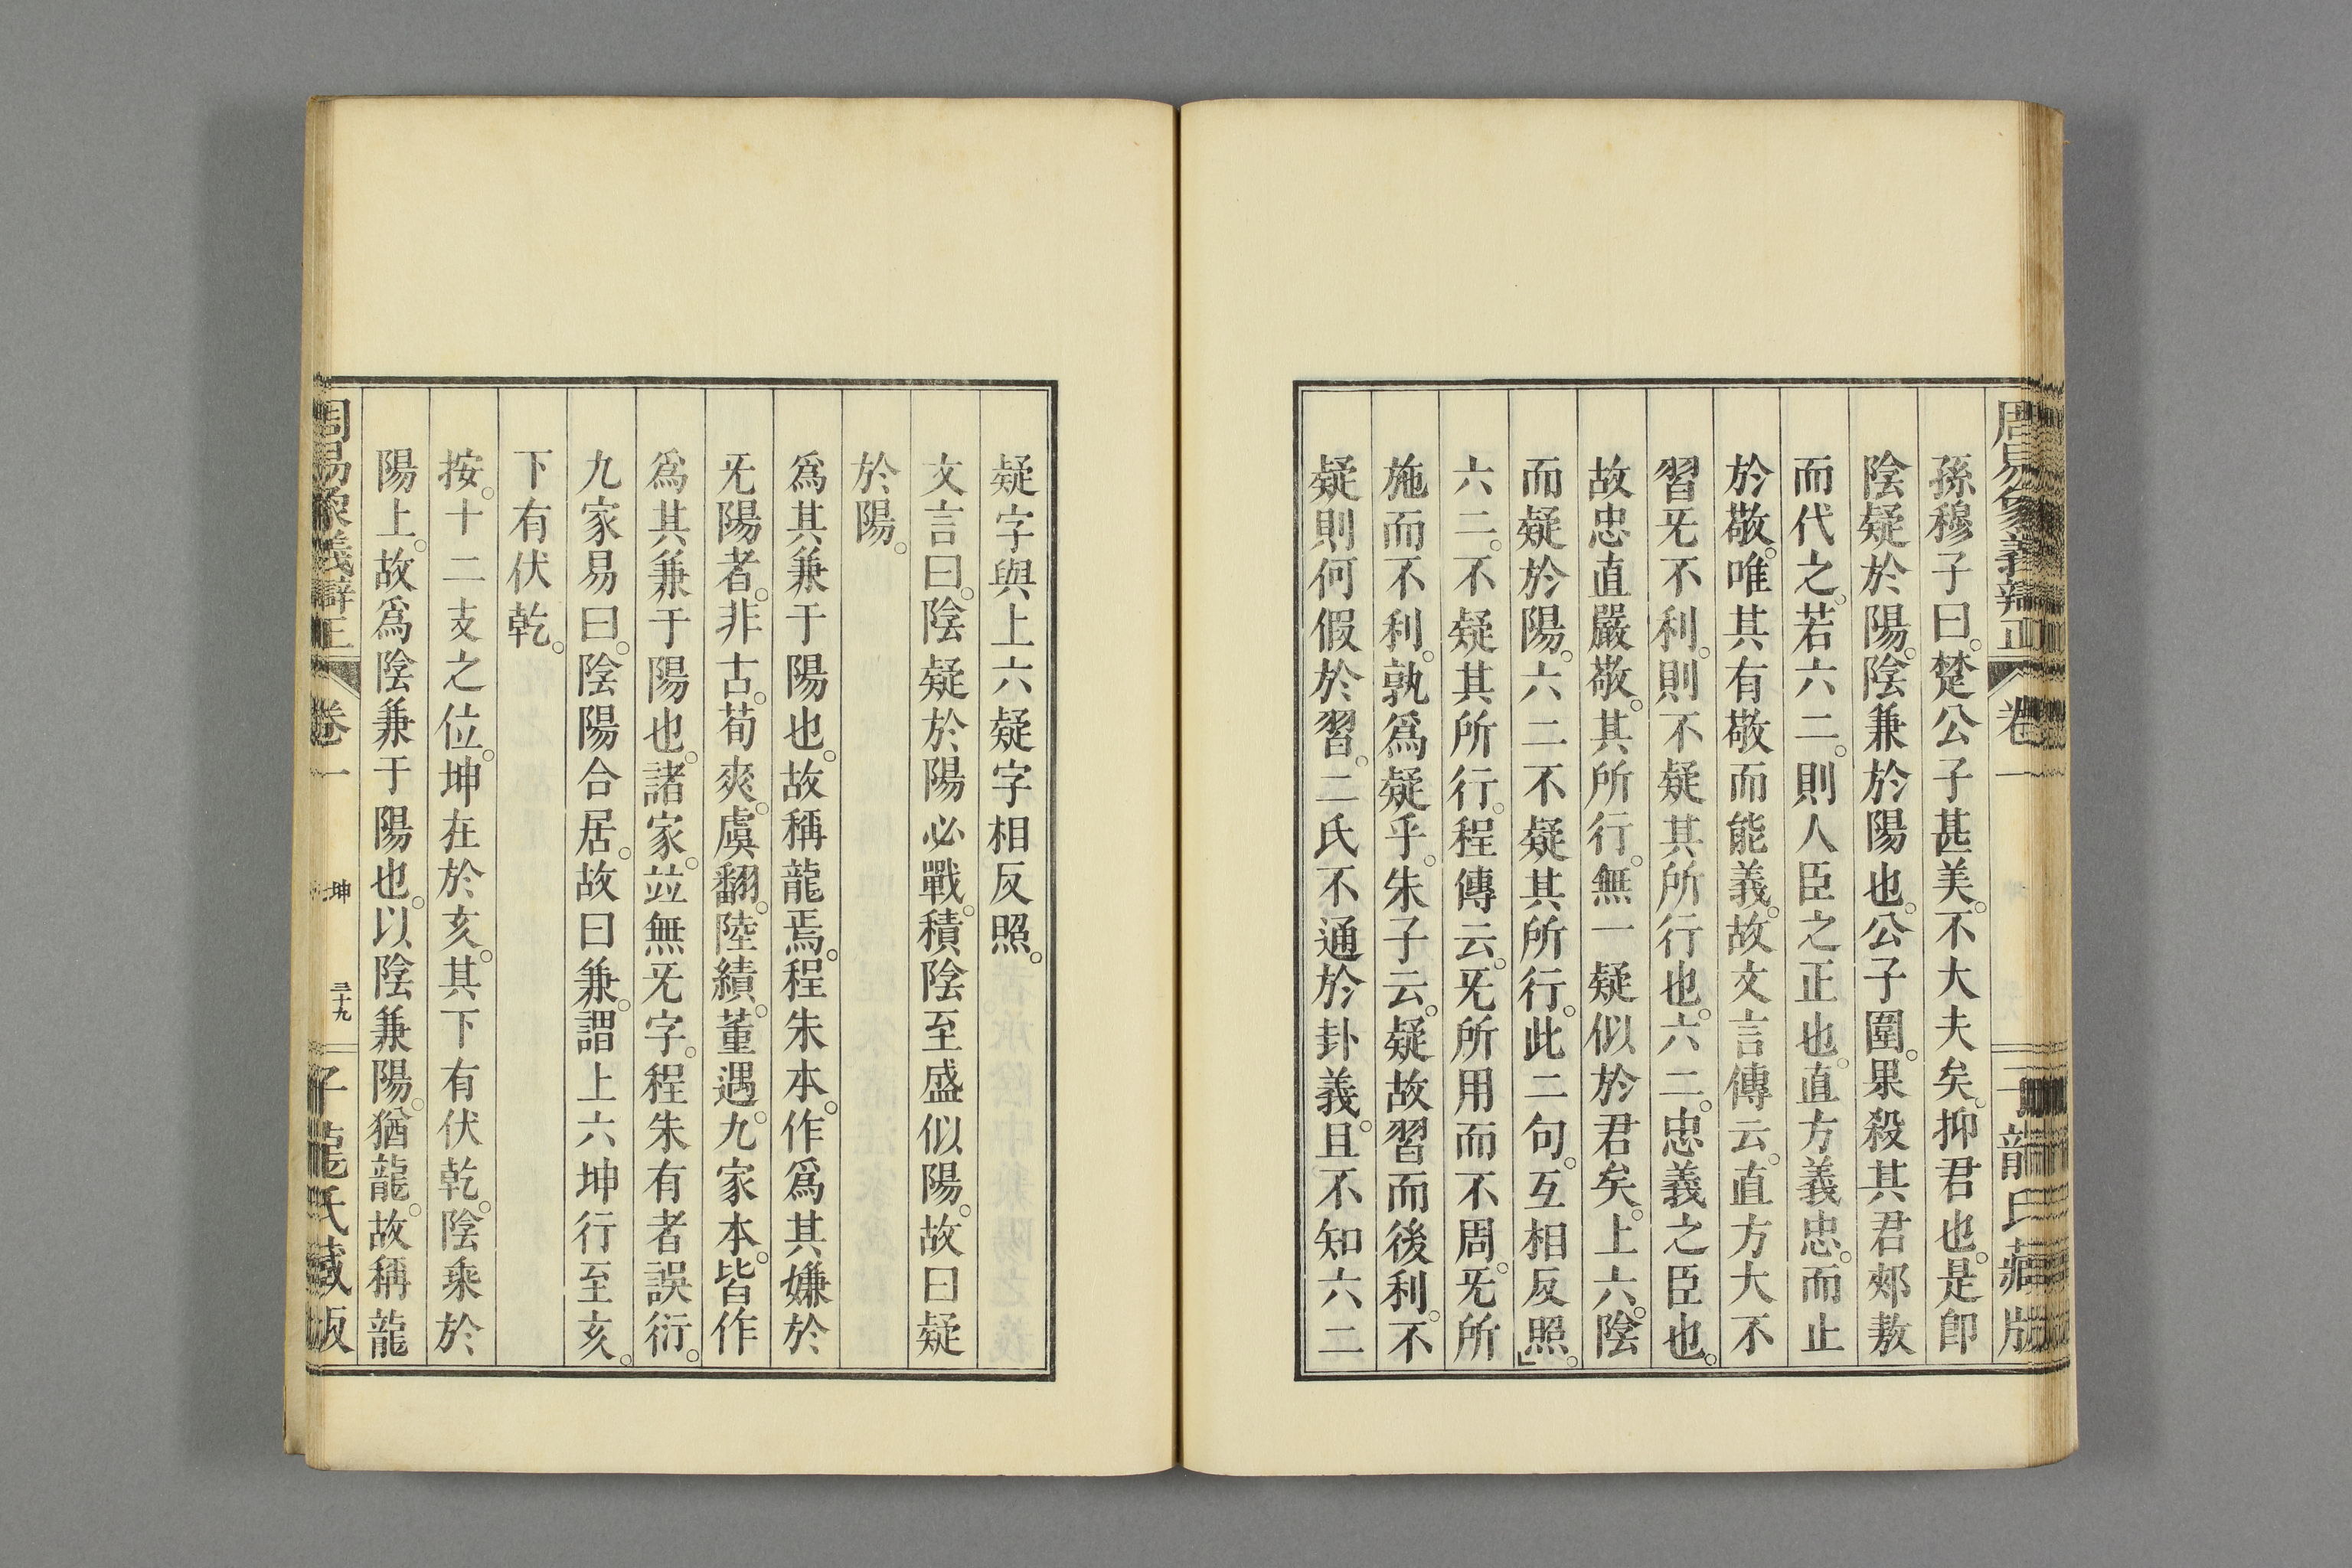 周易象義辯正 卷一 子龍氏藏版
孫穆子曰。楚公子甚美。不大夫矣。抑君也。是卽
陰疑於陽。陰兼於陽也。公子圍。果殺其君郟敖
而代之。若六二。則人臣之正也。直方義忠。而止
於敬。唯其有敬而能義。故文言傳云。直方大不
習旡不利。則不疑其所行也。六二。忠義之臣也。
故忠直嚴敬。其所行。無一疑似於君矣。上六。陰
而疑於陽。六二不疑其所行。此二句。互相反照。」
六二。不疑其所行。程傳云。旡所用而不周。旡所
施而不利。孰爲疑乎。朱子云。疑故習而後利。不
疑則何假於習。二氏不通於卦義。且不知六二
疑字與上六疑字相反照。
文言曰。陰疑於陽必戰。積陰至盛似陽。故曰疑
於陽。
爲其兼于陽也。故稱龍焉。程朱本。作爲其嫌於
旡陽者。非古。荀爽。虞翻。陸績。董遇。九家本。皆作
爲其兼于陽也。諸家。竝無旡字。程朱有者誤衍。
九家易曰。陰陽合居。故曰兼。謂上六坤行至亥。
下有伏乾。
按。十二支之位。坤在於亥。其下有伏乾。陰乘於
陽上。故爲陰兼于陽也。以陰兼陽。猶龍。故稱龍
周易象義辯正 卷一 坤 三十九 子龍氏藏版